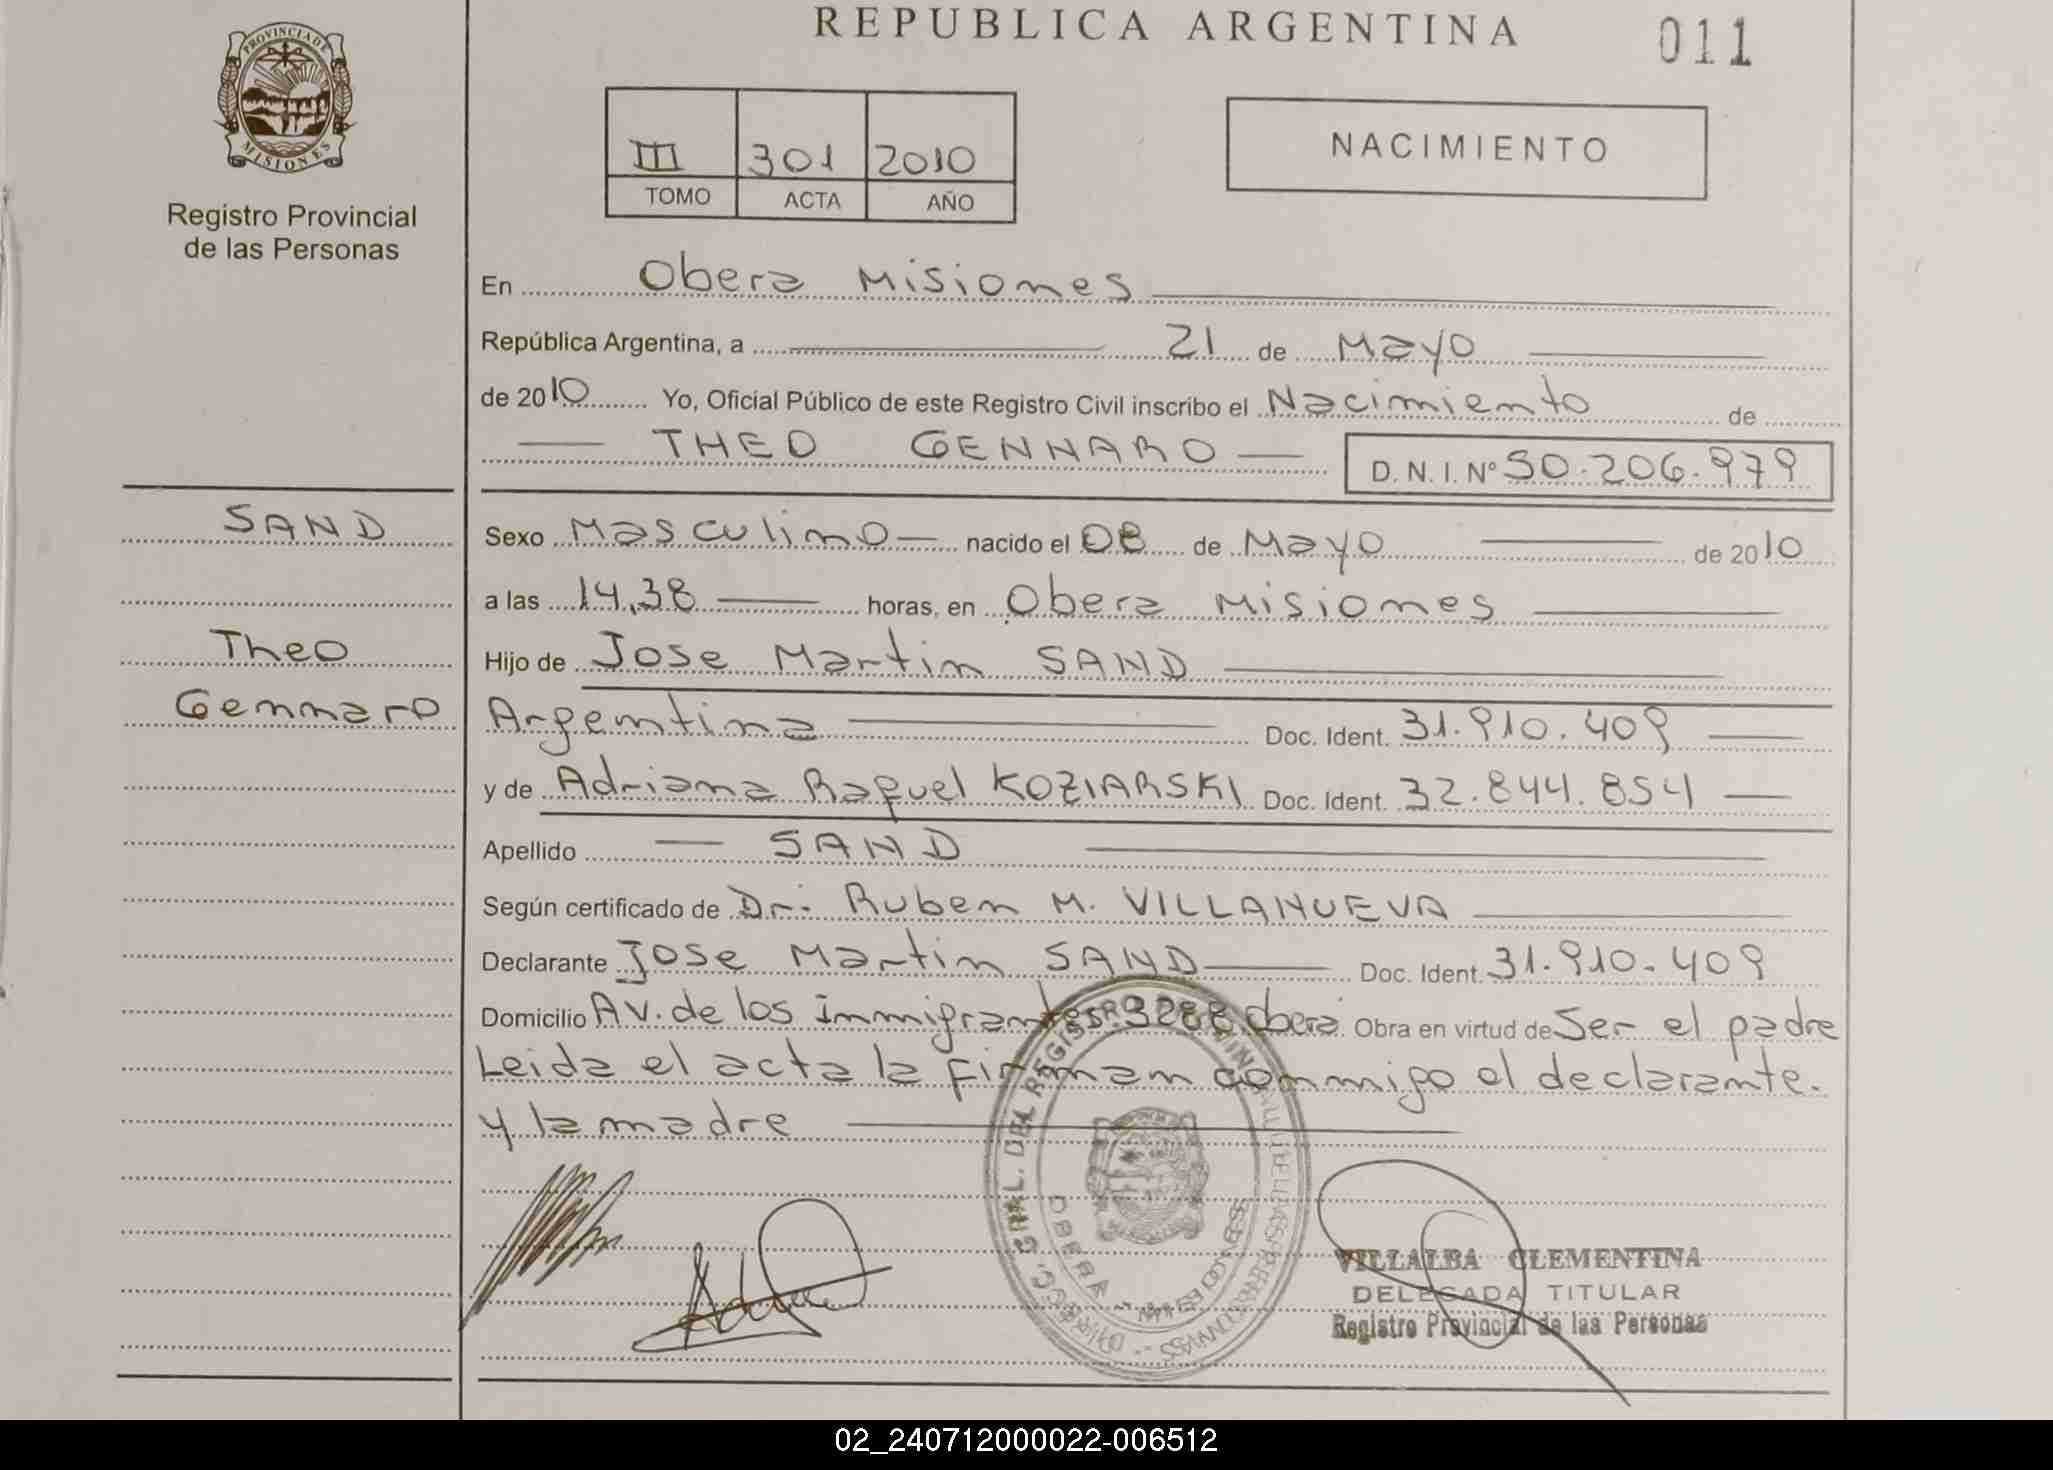 REPUBLICA ARGENTINA
011
PROVINCIA DE MISIONES
Registro Provincial
de las Personas
III 301 2010
TOMO ACTA AÑO
NACIMIENTO
En Obera Misiones
República Argentina, a 21 de Mayo
de 2010 Yo, Oficial Público de este Registro Civil inscribo el Nacimiento de
THEO GENNARO D.N.I. Nº 50.206.979
SAND
Theo
Gennaro
Sexo Masculino nacido el 08 de Mayo de 2010
a las 14,38 horas, en Obera Misiones
Hijo de Jose Martin SAND
Argentina Doc. Ident. 31.910.409
y de Adriana Raquel KOZIARSKI Doc. Ident. 32.844.854
Apellido SAND
Según certificado de Dr. Ruben M. VILLANUEVA
Declarante Jose Martin SAND Doc. Ident. 31.910.409
Domicilio Av. de los immigrantes 3288 Obera Obra en virtud de Ser el padre
Leida el acta la firman conmigo el declarante.
y la madre
GRAL. DEL REGISTRO
OBERA - MISIONES
VILLALBA CLEMENTINA
DELEGADA TITULAR
Registro Provincial de las Personas
02_240712000022-006512